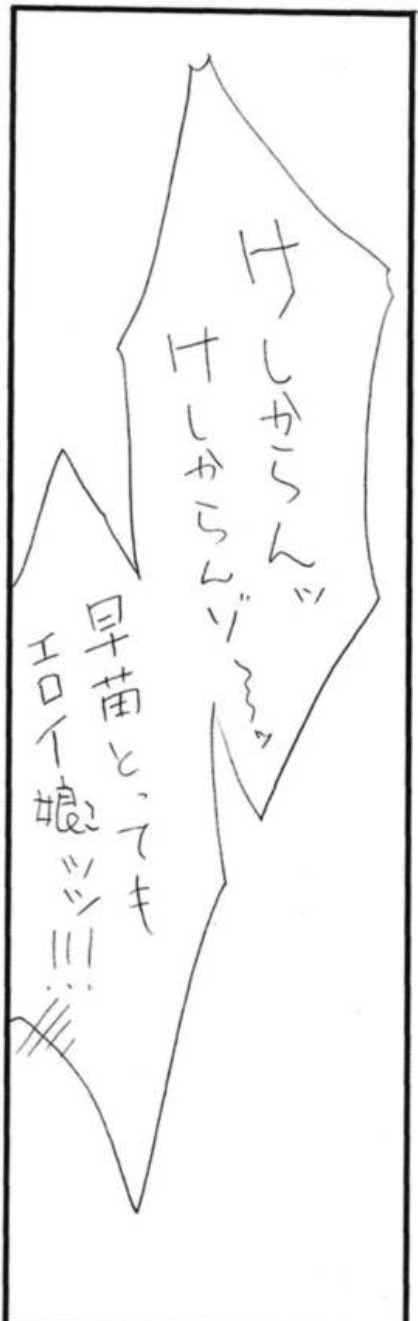 けしからんッ
けしからんゾ～～ッ
早苗とっても
エロイ娘ッッ!!!